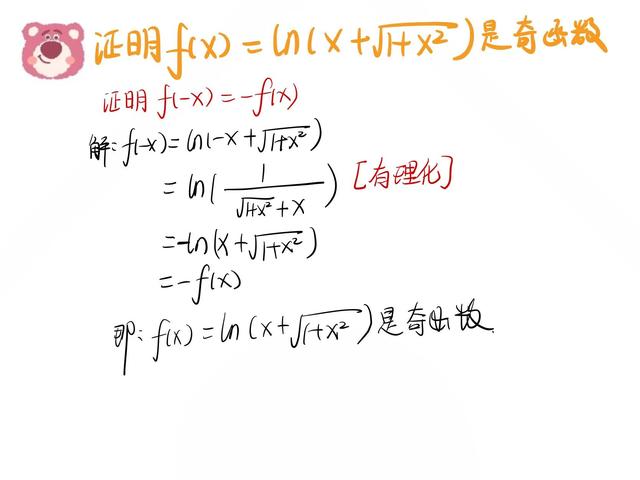 证明f(x)=ln(x+√1+x²)是奇函数
证明f(-x)=-f(x)
解:f(-x)=ln(-x+√1+x²)
=ln(1/(√1+x²+x)) [有理化]
=-ln(x+√1+x²)
=-f(x)
即:f(x)=ln(x+√1+x²)是奇函数.